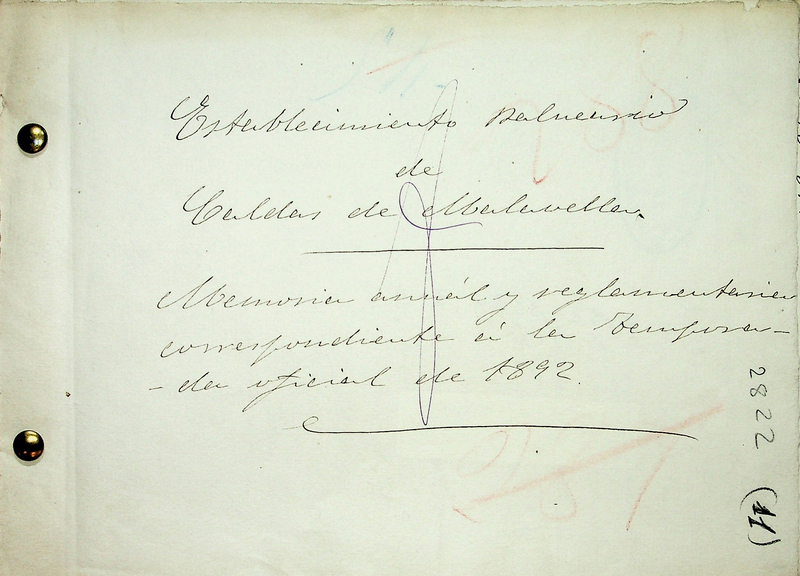 Establecimiento Balneario
de
Caldas de Malavella.
Memoria anuál y reglamentaria
correspondiente á la tempora-
-da oficial de 1892.
2822 (11)